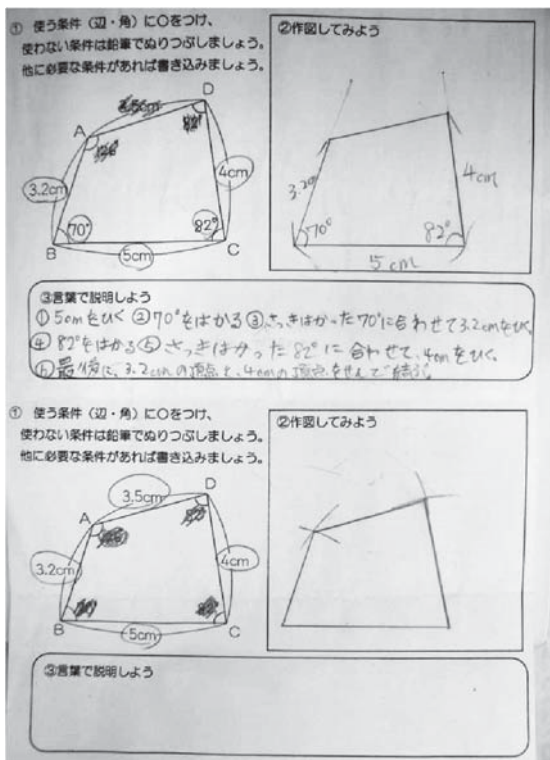 ① 使う条件（辺・角）に〇をつけ、
使わない条件は鉛筆でぬりつぶしましょう。
他に必要な条件があれば書き込みましょう。
D
A
3.2cm
4cm
70°
82°
B
5cm
C
②作図してみよう
3.2cm
4cm
70°
82°
5cm
③言葉で説明しよう
① 5cmをひく ② 70°をはかる ③ さっきはかった70°に合わせて3.2cmをひく。
④ 82°をはかる ⑤ さっきはかった82°に合わせて、4cmをひく。
⑥ 最後に、3.2cmの頂点と、4cmの頂点をせんで結ぶ。
① 使う条件（辺・角）に〇をつけ、
使わない条件は鉛筆でぬりつぶしましょう。
他に必要な条件があれば書き込みましょう。
3.5cm
D
A
3.2cm
4cm
B
5cm
C
②作図してみよう
③言葉で説明しよう